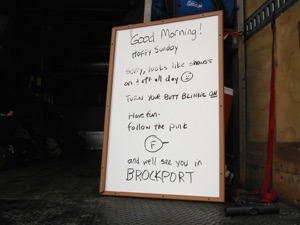 Good Morning!
Happy Sunday
Sorry, looks like showers
on & off all day
TURN YOUR BUTT BLINKIE ON
Have fun-
follow the pink
F
and we'll see you in
BROCKPORT